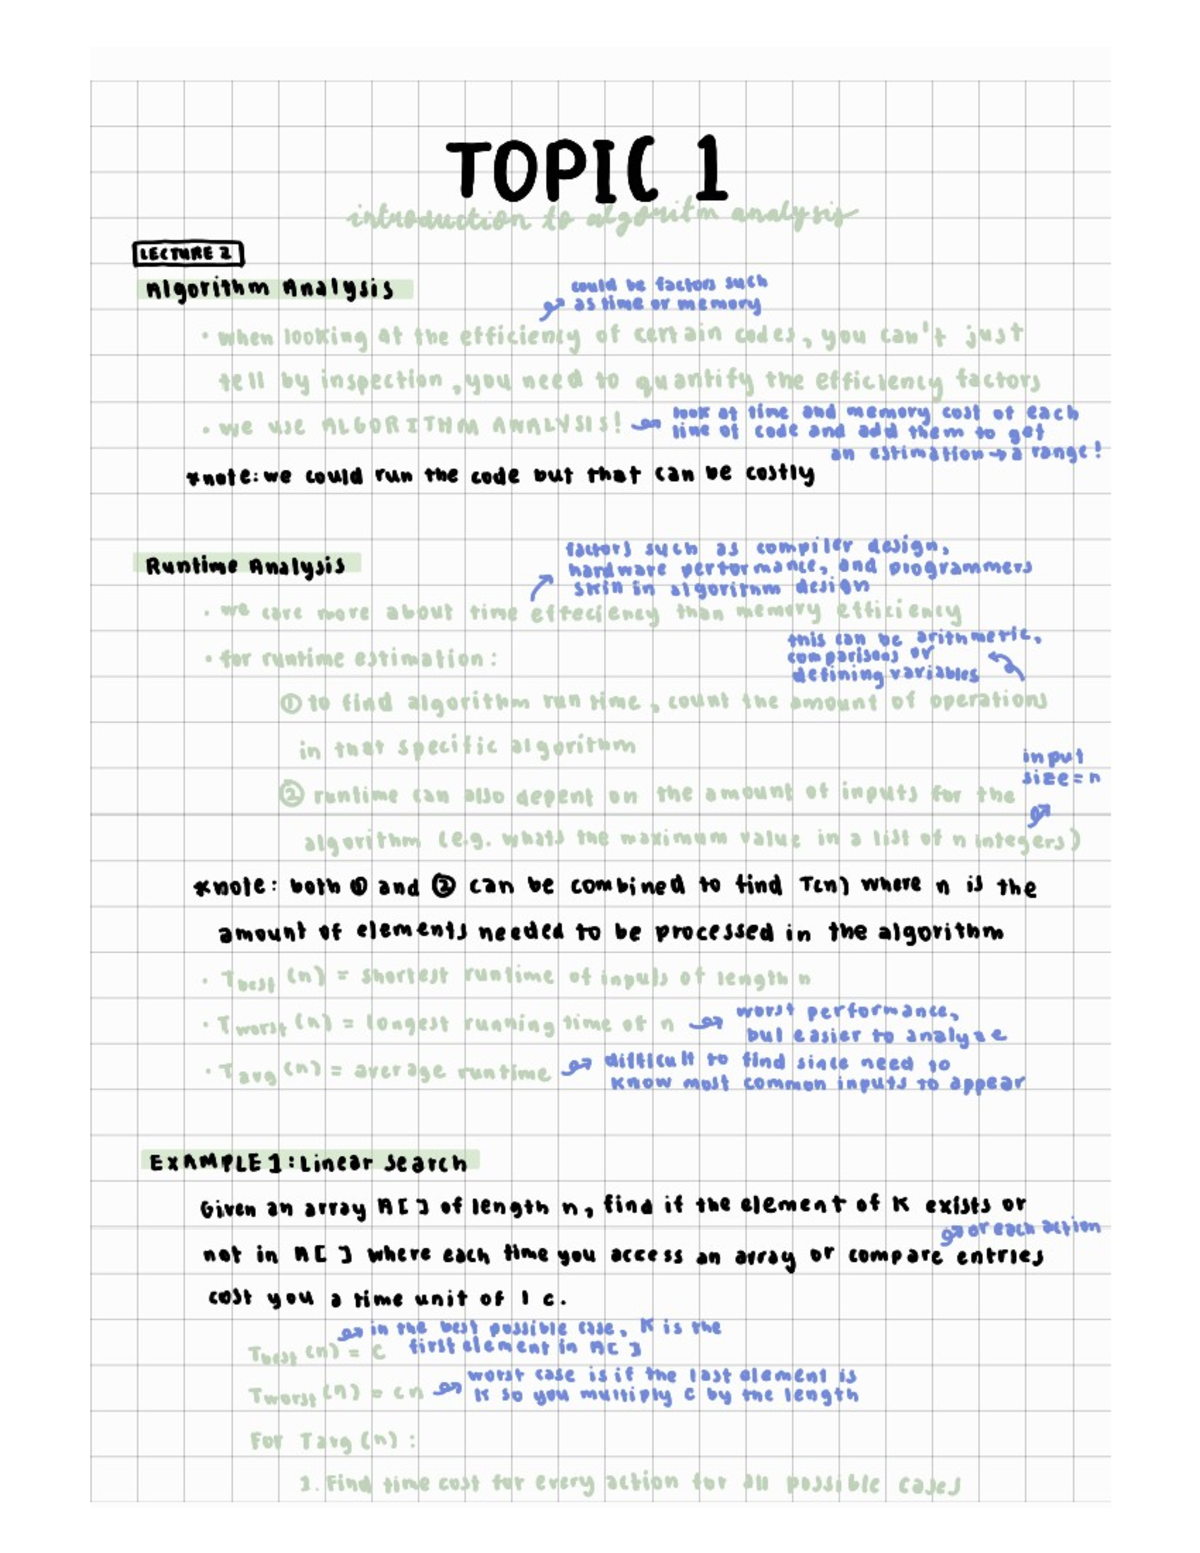 TOPIC 1
introduction to algoritm analysis
LECTURE 2
Algorithm Analysis
could be factors such
as time or memory
• when looking at the efficiency of certain codes, you can't just
tell by inspection, you need to quantify the efficiency factors
• we use ALGORITHM ANALYSIS!
look at time and memory cost of each
line of code and add them to get
an estimation → a range!
*note: we could run the code but that can be costly
Runtime Analysis
factors such as compiler design,
hardware performance, and programmers
skill in algorithm design
• we care more about time effeciency than memory efficiency
this can be arithmetic,
comparisons or
defining variables
• for runtime estimation:
① to find algorithm run time, count the amount of operations
in that specific algorithm
input
size = n
② runtime can also depent on the amount of inputs for the
algorithm (e.g. whats the maximum value in a list of n integers)
*note: both ① and ② can be combined to find T(n) where n is the
amount of elements needed to be processed in the algorithm
• Tbest (n) = shortest runtime of inputs of length n
• Tworst (n) = longest running time of n
worst performance,
but easier to analyze
• Tavg (n) = average runtime
difficult to find since need to
know most common inputs to appear
EXAMPLE 1: Linear Search
Given an array A[ ] of length n, find if the element of K exists or
or each action
not in A[ ] where each time you access an array or compare entries
cost you a time unit of 1 c.
in the best possible case, K is the
first element in A[ ]
Tbest (n) = c
worst case is if the last element is
K so you multiply c by the length
Tworst (n) = cn
For Tavg (n) :
1. Find time cost for every action for all possible cases